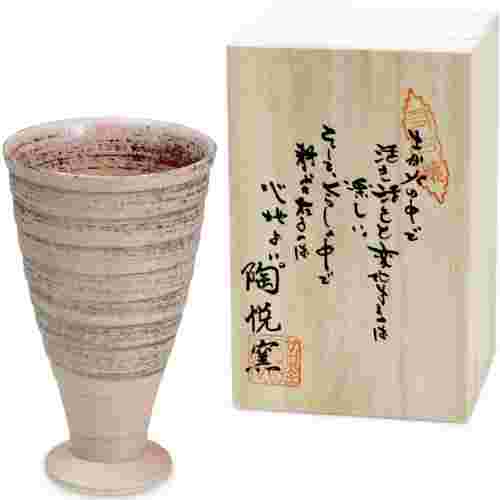 土が火の中で
活き活きと変化するのは
楽しい。
そして、くらしの中で
器が在るのは
心地よい。
陶悦窯